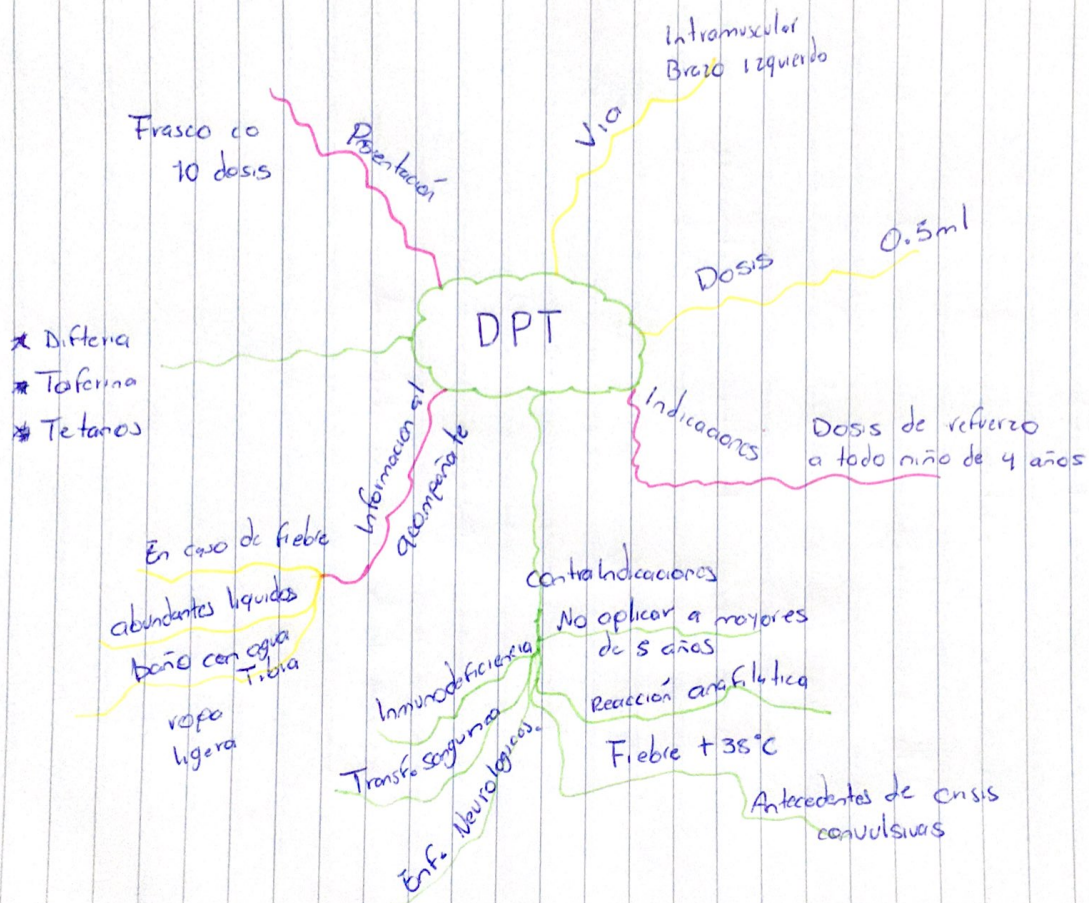 DPT
Presentación
Frasco co
10 dosis
Via
Intramuscular
Brazo izquierdo
Dosis
0.5ml
Indicaciones
Dosis de refuerzo
a todo niño de 4 años
* Difteria
* Toferina
* Tetanos
Información al
acompañate
En caso de fiebre
abundantes liquidos
baño con agua
Tibia
ropa
ligera
Contraindicaciones
No aplicar a mayores
de 5 años
Reacción anafilatica
Fiebre + 38°C
Antecedentes de crisis
convulsivas
Inmunodeficiencia
Transf. sanguinea
Enf. Neurologicos.